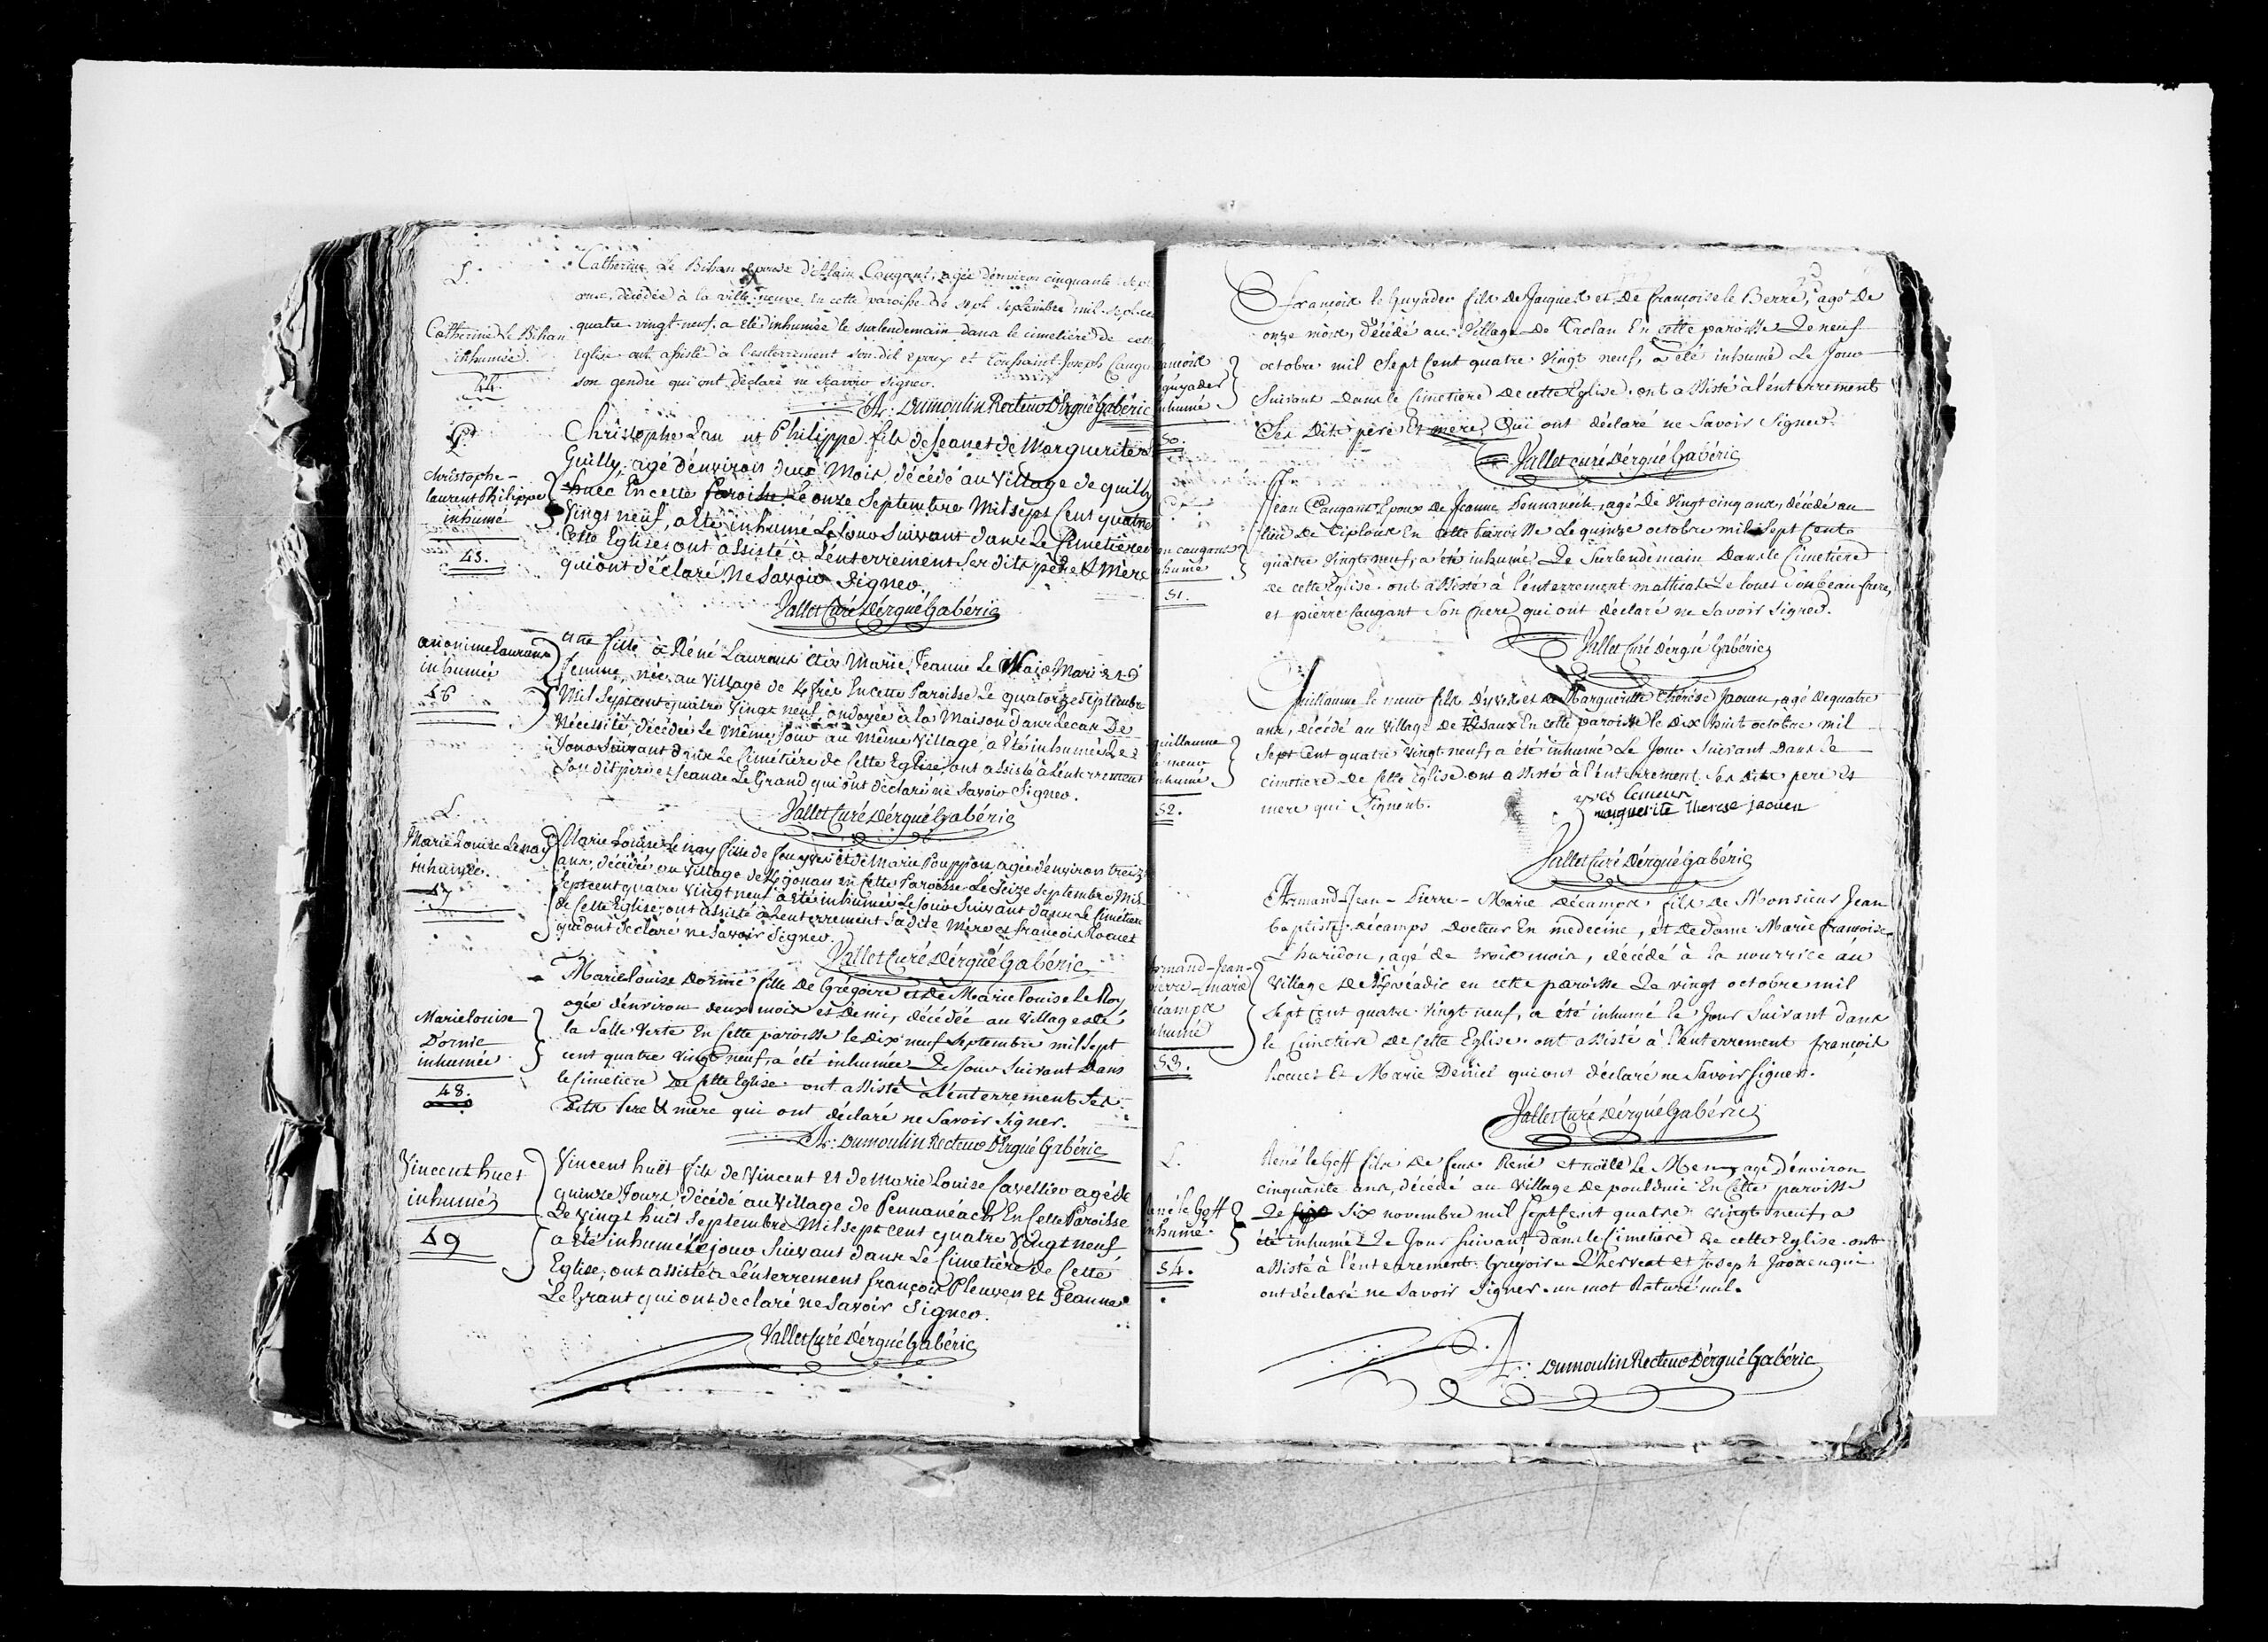 L.
Catherine Le Bihan
inhumée.
44.
Catherine Le Bihan epouse d'Alain Caugant, agée d'environ cinquante sept
ans, décédée à la ville neuve en cette paroisse le sept septembre mil sept cent
quatre vingt neuf, a été inhumée le surlendemain dans le cimetiere de cette
Eglise ont assisté à l'enterrement son dit epoux et Toussaint Joseph Caugant
son gendre qui ont déclaré ne scavoir signer.
A: Dumoulin Recteur D'Ergué Gabéric
christophe-
laurent Philippe
inhumé
45.
Christophe Laurent Philippe fils de Jean et de Marguerite
Guilly, agé d'environ deux Mois, décédé au Village de quilly
huec En cette Paroisse Le onze Septembre Mil sept Cent quatre
Vingt neuf, a été inhumé Le Jour Suivant dans Le Cimetière de
Cette Eglise; ont assisté à L'enterrement Ses dits père et Mère
qui ont déclaré Ne Savoir Signer.
Vallet Curé D'érgué Gabéric
anonime Laurans
inhumée
46
une fille à Réné Laurans et à Marie Jeanne Le Naic Mari et
femme, née au Village de en cette Paroisse Le quatorze Septembre
Mil Sept cent quatre Vingt neuf, ondoyée à la Maison dans Le cas De
Nécessité, décédée Le Même Jour au Même Village, a été inhumée Le
Jour Suivant dans Le Cimétière de Cette Eglise, ont assisté à L'enterrement
Son dit père et Jeanne Le Grand qui ont déclaré ne Savoir Signer.
Vallet Curé D'érgué Gabéric
L.
Marie Louise Le nay
inhumée.
47
Marie Louise Le nay fille de feu yves et de Marie Pouppon agée d'environ treize
ans, décédée au Village de en cette Paroisse Le Seize Septembre Mil
Sept cent quatre Vingt neuf a été inhumée Le Jour Suivant dans Le Cimetière
de Cette Eglise; ont assisté à L'enterrement Sa dite Mere et françois Rocuet
qui ont déclaré ne Savoir Signer.
Vallet Curé D'érgué Gabéric
Marie louise
Dornic
inhumée
48.
Marie louise Dornic fille De Grégoire et De Marie louise Le Roy
agée d'environ deux mois et Demi, décédée au Village de
la Salle Verte En Cette paroisse le Dix neuf Septembre mil Sept
cent quatre Vingt neuf, a été inhumée Le Jour Suivant Dans
le Cimetiere De Cette Eglise. ont assisté à l'enterrement Ses
Dits Pere et mère qui ont déclaré ne Savoir Signer.
A: Dumoulin Recteur D'Ergué Gabéric
Vincent huet
inhumé
49
Vincent huët fils de Vincent et de Marie Louise Cavellier agé de
quinze Jours décédé au Village de Pennanéach En Cette Paroisse
Le Vingt huit Septembre Mil sept cent quatre Vingt neuf
a été inhumé Le jour Suivant dans Le Cimetière de Cette
Eglise; ont assisté à L'enterrement françois Pleuven et Jeanne
Le Grant qui ont declaré ne Savoir Signer.
Vallet Curé D'érgué Gabéric
ançois
guyader
nhumé
50.
François le Guyader fils De Jacques et De françoise le Berre, agé De
onze mois, Décédé au Village De Krolan En cette paroisse Le neuf
octobre mil Sept Cent quatre Vingt neuf, a été inhumé Le Jour
Suivant Dans le Cimetiere De cette Eglise. ont assisté à l'énterrement
Ses Dits père Et mère, Qui ont déclaré ne Savoir Signer.
Vallet curé D'érgué Gabéric
an caugant
humé
51.
Jean Caugant Epoux De Jeanne Pennanech, agé De Vingt cinq ans, décédé au
lieu De En Cette Paroisse Le quinze octobre mil Sept Cent
quatre Vingt neuf, a été inhumé Le Surlendemain Dans le Cimetiere
De cette Eglise. ont assisté à l'enterrement mathias Le Son beau frere,
et pièrre Caugant Son Père, qui ont déclaré ne Savoir Signer.
Vallet Curé D'érgué Gabéric
guillaume
le meur
nhumé
52.
Guillaume le meur fils D'yves et De Marguerite thérèse Jaouen, agé De quatre
ans, Décédé au Village De En cette paroisse le Dix huit octobre mil
Sept Cent quatre Vingt neuf, a été inhumé Le Jour Suivant Dans Le
cimetiere De Cette Eglise. ont assisté à l'enterrement Ses Dits pere Et
mere qui Signent.
yves lemeur
marguerite therese jaouen
Vallet Curé D'érgué Gabéric
rmand-Jean-
ierre-marie
écamps
nhumé
53.
Armand-Jean-Pierre-Marie Décamps fils De Monsieur Jean
baptiste Décamps Docteur En medecine, et De Dame Marie françoise
L'haridon, agé de trois mois, décédé à la nourrice au
Village De en cette paroisse Le vingt octobre mil
Sept Cent quatre Vingt neuf, a été inhumé le Jour Suivant dans
le Cimetiere De Cette Eglise. ont assisté à l'enterrement françois
Rocuet Et Marie Deniel qui ont déclaré ne Savoir Signer.
Vallet Curé D'érgué Gabéric
L.
ené le Goff
nhumé
54.
René le Goff fils De feu René et noële Le Meur, agé D'environ
cinquante ans, décédé au Village De poulduic En Cette paroisse
Le six novembre mil Sept Cent quatre vingt neuf, a
été inhumé Le Jour Suivant Dans le Cimetiere De cette Eglise. ont
assisté à l'enterrement Grégoire L'herveat et Joseph Jaouen qui
ont déclaré ne Savoir Signer. un mot Raturé nul.
A: Dumoulin Recteur D'érgué Gabéric